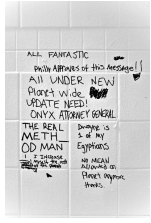 ALL FANTASTIC
Philly Approves of this Message!!
All UNDER NEW
Planet Wide
UPDATE NEED!
ONYX ATTORNEY GENERAL
THE REAL
METH
OD MAN
I Increase
Dwayne is
1 of my
Egyptians
NO MEAN
Allowed on
Planet anymore
thanks